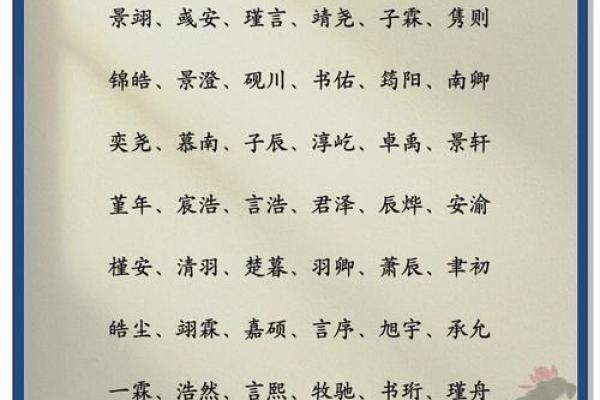 景翊、彧安、瑾言、靖尧、子霖、隽则
锦皓、景澄、砚川、书佑、筠阳、南卿
奕尧、慕南、子辰、淳屹、卓禹、景轩
堇年、宸浩、言浩、君泽、辰烨、安渝
槿安、清羽、楚暮、羽卿、萧辰、聿初
皓尘、翊霖、嘉硕、言序、旭宇、承允
一霖、浩然、言熙、牧驰、书珩、瑾舟